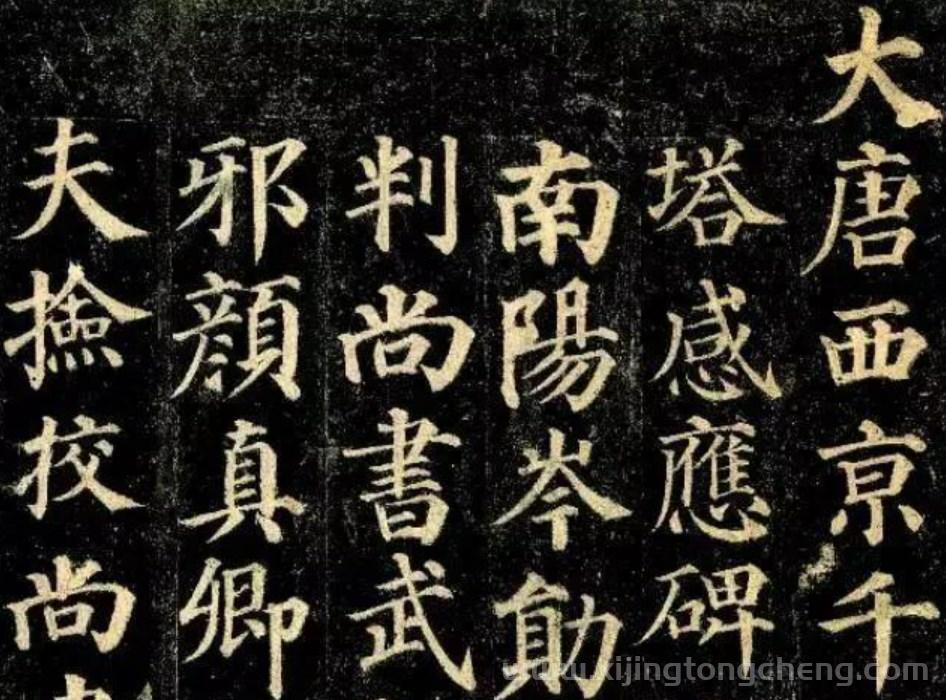 大唐西京千
塔感應碑
南陽岑勛
判尚書武
邪顏真卿
夫撿挍尚
www.xijingtongcheng.com